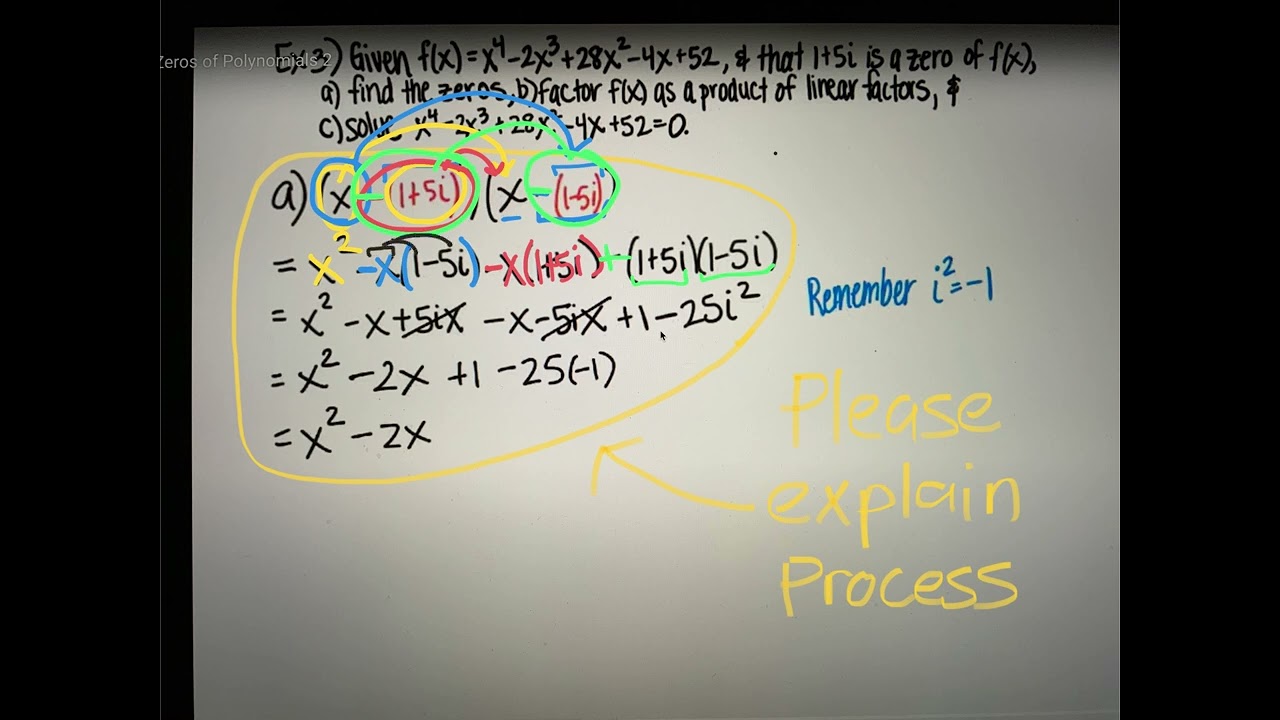 Zeros of Polynomials 2
Ex 3) Given f(x) = x⁴ - 2x³ + 28x² - 4x + 52, & that 1+5i is a zero of f(x),
a) find the zeros, b) factor f(x) as a product of linear factors, &
c) solve x⁴ - 2x³ + 28x² - 4x + 52 = 0.
a) (x - (1+5i))(x - (1-5i))
= x² - x(1-5i) - x(1+5i) + (1+5i)(1-5i)
= x² - x + 5ix - x - 5ix + 1 - 25i²
Remember i² = -1
= x² - 2x + 1 - 25(-1)
= x² - 2x
Please
explain
Process